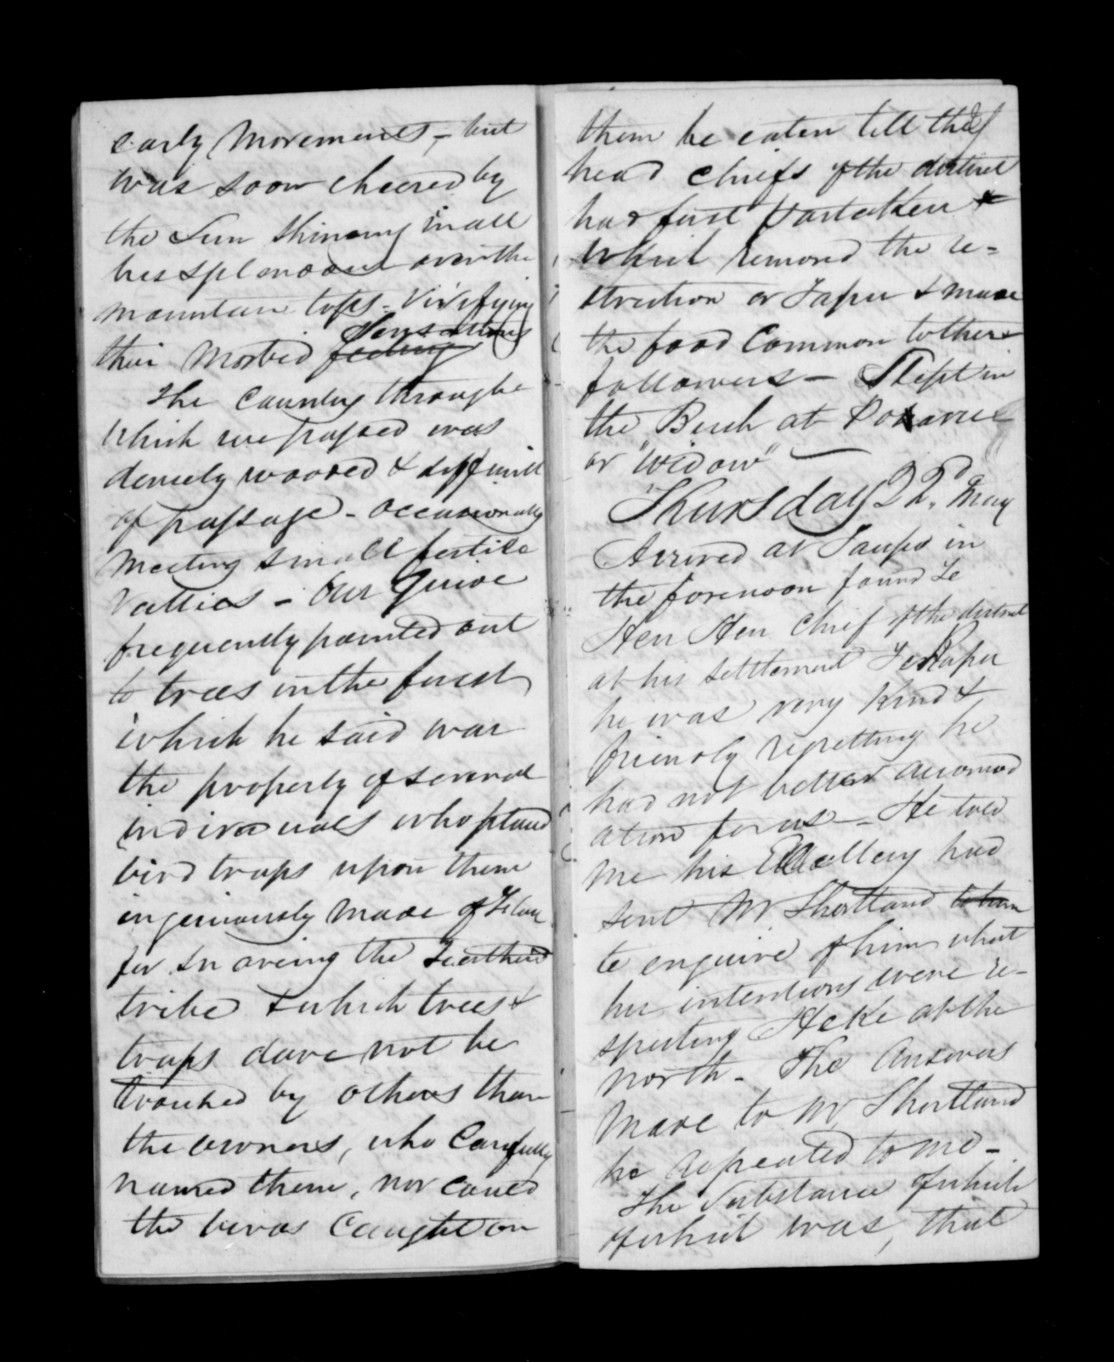 early movements, - but
was soon cheered by
the Sun shining in all
his splendour over the
mountain tops - Vivifying
Sensations
their Morbid feelings
The Country through
which we passed was
densely wooded & difficult
of passage - occasionally
meeting small fertile
Vallies - Our Guide
frequently pointed out
to trees in the forest
which he said was
the property of several
individuals who placed
bird traps upon them
ingeniously made of
for snareing the Feathered
tribe & which trees &
traps dare not be
touched by others than
the owners, who Carefully
named them, nor could
the birds Caught on
them be eaten till the
head Chiefs of the district
had first partaken
which removed the re=
striction or Tapu & made
the food Common to there
followers - Slept in
the Bush at
or "Widow"
Thursday 22d. May
Arrived at Taupo in
the forenoon found Te
Heu Heu Chief of the district
at his settlement Te Rapa
he was very kind &
friendly regretting he
had not better accomod
ation for us - He told
me his Excellency had
sent Mr Shortland to him
to enquire of him what
his intentions were re-
specting Heke at the
north - The Answers
made to Mr Shortland
he repeated to me -
The Substance of which
of which was, that